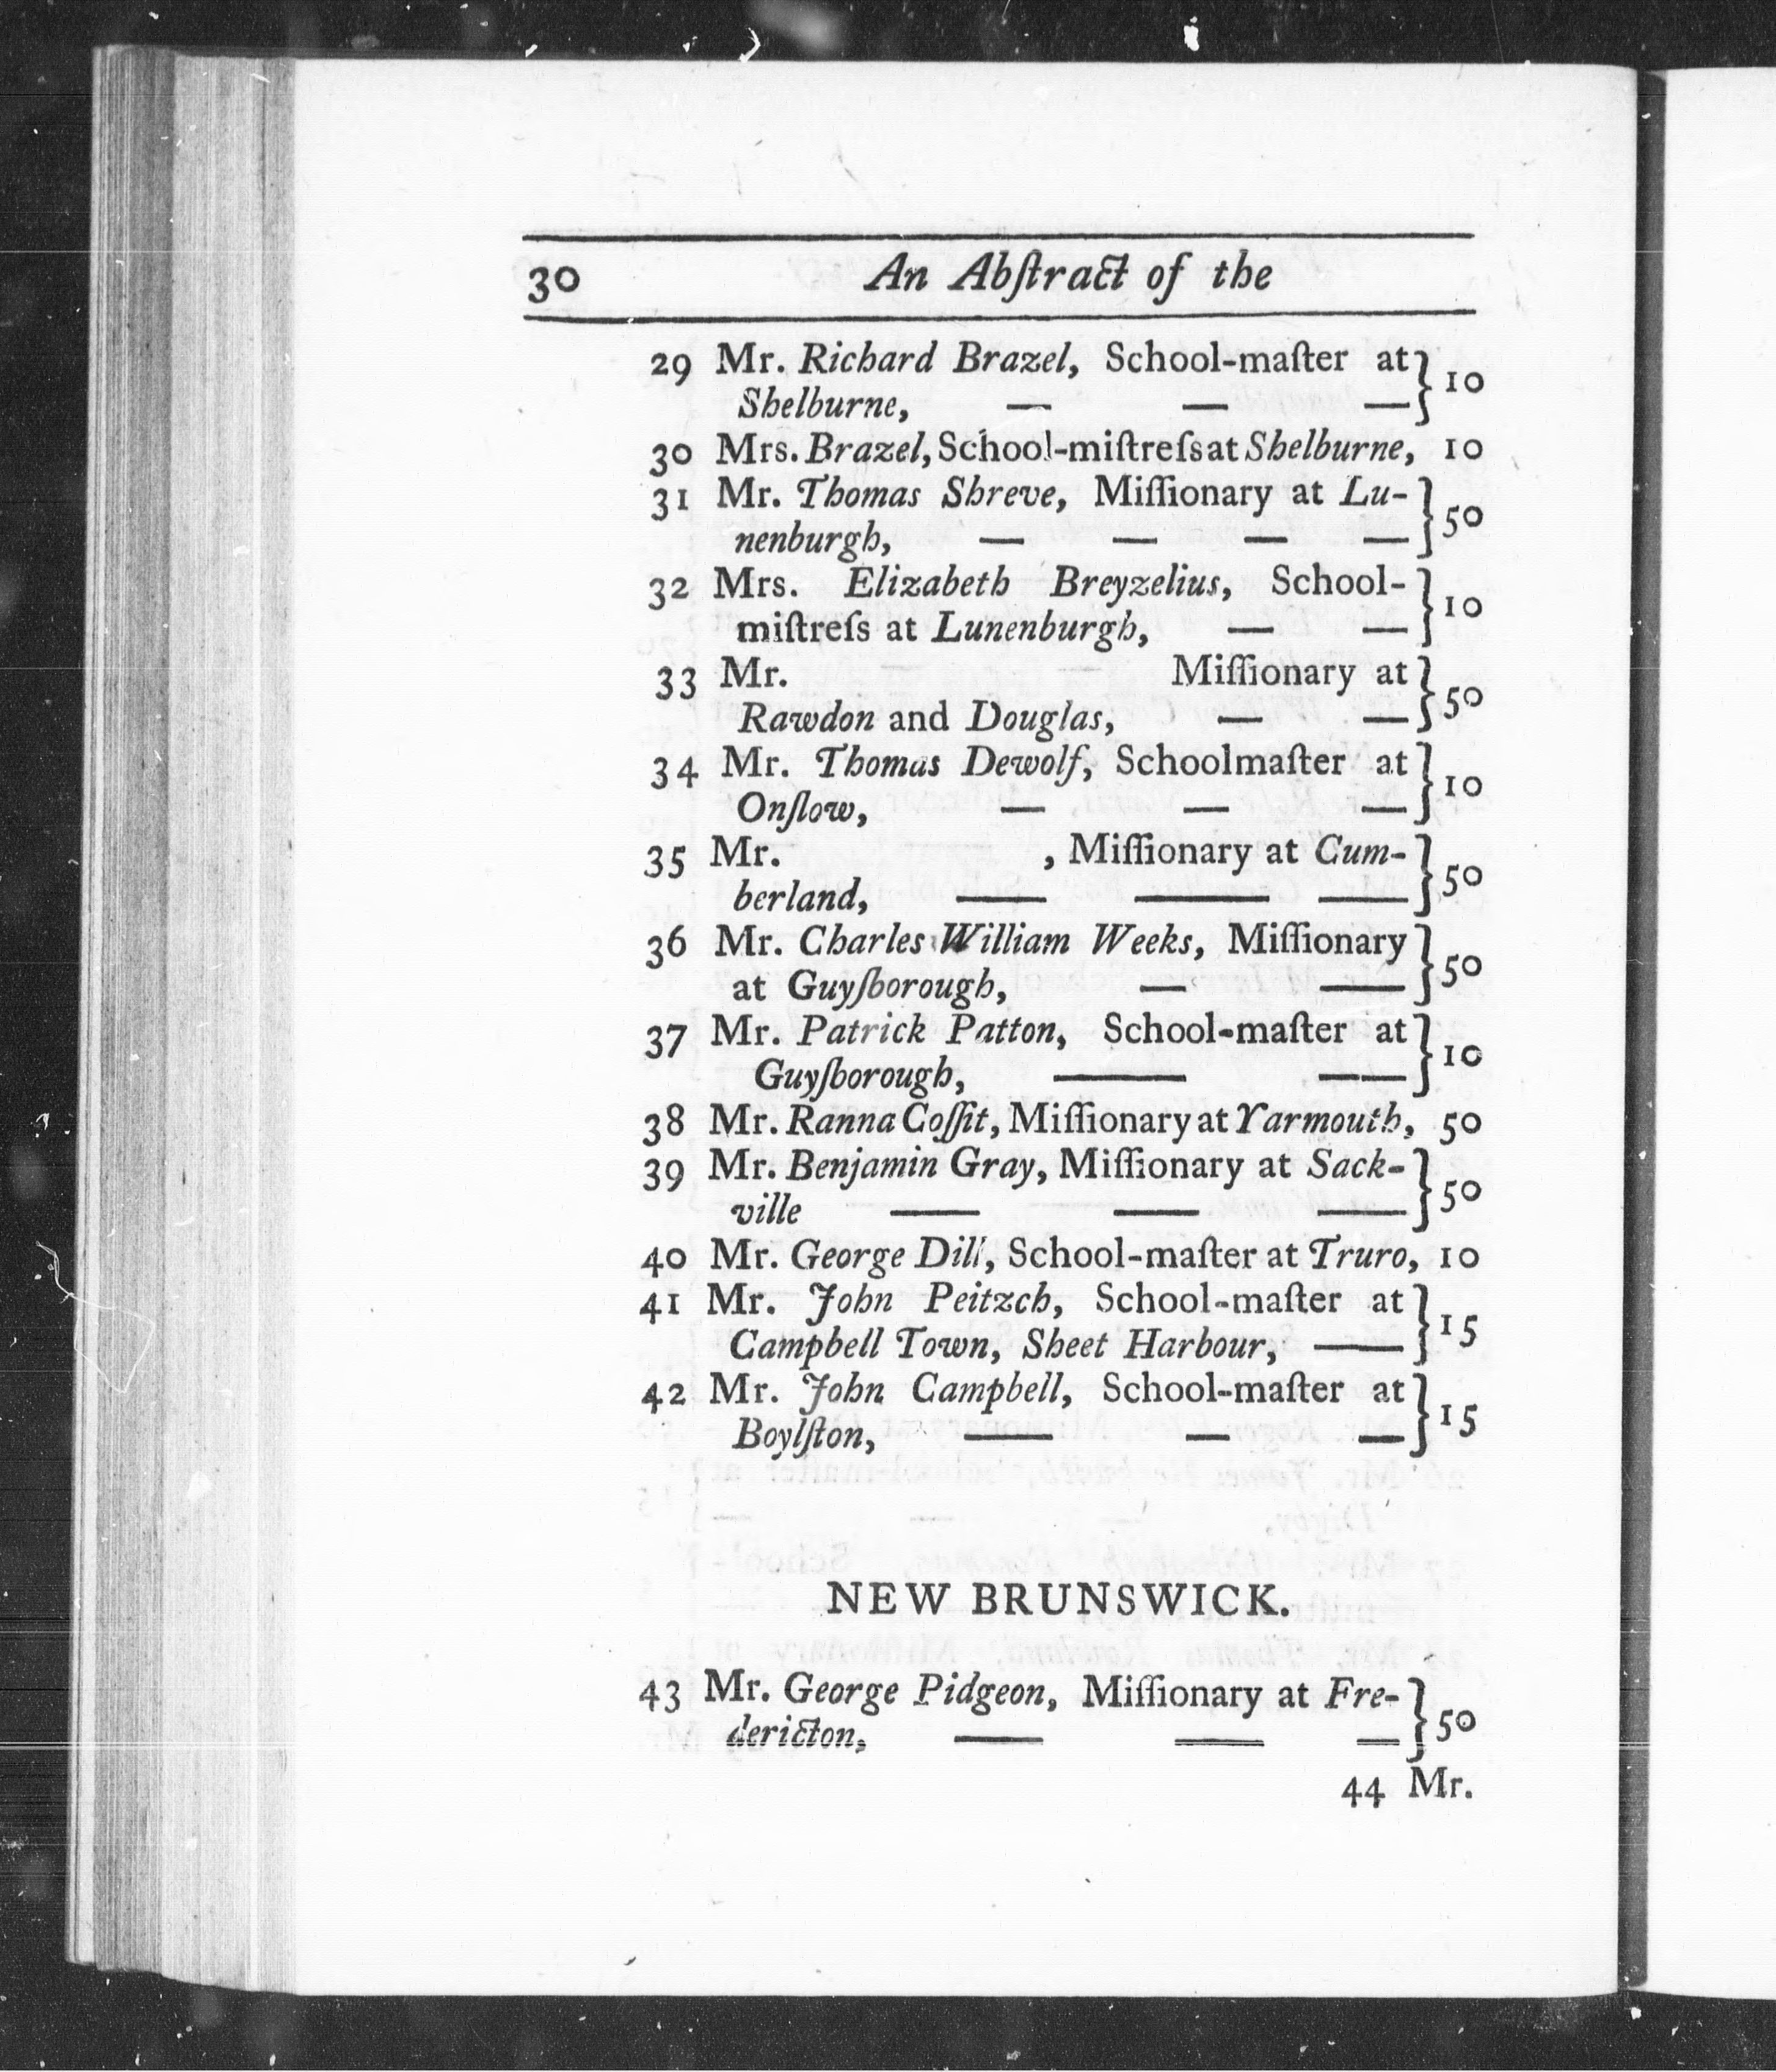 30 An Abſtract of the
29 Mr. Richard Brazel, School-maſter at } 10
Shelburne, — — —
30 Mrs. Brazel, School-miſtreſs at Shelburne, 10
31 Mr. Thomas Shreve, Miſſionary at Lu- } 50
nenburgh, — — — —
32 Mrs. Elizabeth Breyzelius, School- } 10
miſtreſs at Lunenburgh, — —
33 Mr. Miſſionary at } 50
Rawdon and Douglas, — —
34 Mr. Thomas Dewolf, Schoolmaſter at } 10
Onſlow, — — —
35 Mr. , Miſſionary at Cum- } 50
berland, — — —
36 Mr. Charles William Weeks, Miſſionary } 50
at Guyſborough, — —
37 Mr. Patrick Patton, School-maſter at } 10
Guyſborough, — —
38 Mr. Ranna Coſſit, Miſſionary at Yarmouth, 50
39 Mr. Benjamin Gray, Miſſionary at Sack- } 50
ville — — —
40 Mr. George Dill, School-maſter at Truro, 10
41 Mr. John Peitzch, School-maſter at } 15
Campbell Town, Sheet Harbour, —
42 Mr. John Campbell, School-maſter at } 15
Boylſton, — — —
NEW BRUNSWICK.
43 Mr. George Pidgeon, Miſſionary at Fre- } 50
dericton, — — —
44 Mr.